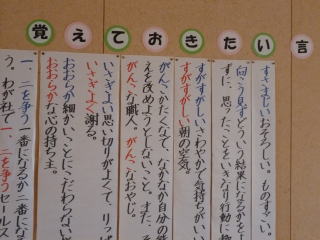 覚えておきたい言
すさまじいおそろしい。ものすごい。
向こう見ずどういう結果になるかをよ
ずに、思ったことをいきなり行動に移
すがすがしいさわやかで気持ちがいい
すがすがしい朝の空気。
がんこかたくなで、なかなか自分の
えを改めようとしないこと。また、そ
がんこな職人。がんこなおやじ。
いさぎよい思い切りがよくて、りっぱ
いさぎよく謝る。
おおらか細かいことにこだわらない
おおらかな心の持ち主。
一、二を争う一番になるか二番にな
う。わが社で一、二を争うセールス